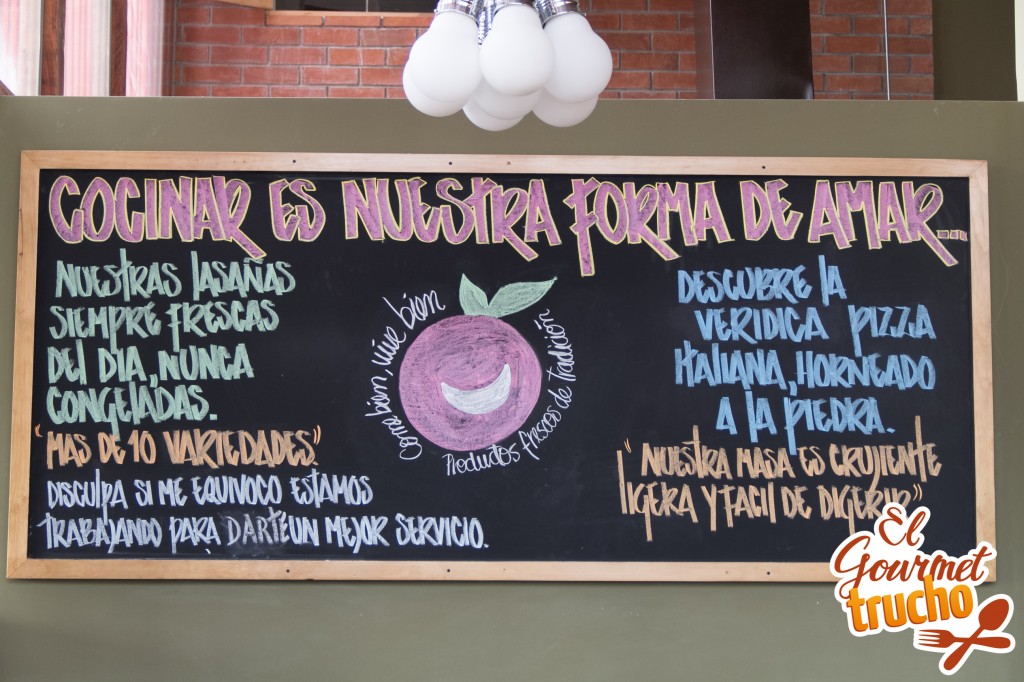 COCINAR ES NUESTRA FORMA DE AMAR...
NUESTRAS LASAÑAS
SIEMPRE FRESCAS
DEL DIA, NUNCA
CONGELADAS.
"MAS DE 10 VARIEDADES"
DISCULPA SI ME EQUIVOCO ESTAMOS
TRABAJANDO PARA DARTE UN MEJOR SERVICIO.
coma bien, vive bien
Productos frescos de tradición
DESCUBRE LA
VERIDICA PIZZA
ITALIANA, HORNEADO
A LA PIEDRA.
"NUESTRA MASA ES CRUJIENTE
LIGERA Y FACIL DE DIGERIR"
El
Gourmet
trucho